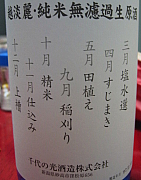 越淡麗・純米無濾過生原酒
三月 塩水選
四月 すじまき
五月 田植え
九月 稲刈り
十月 精米
十一月 仕込み
十二月 上槽
千代の光酒造株式会社